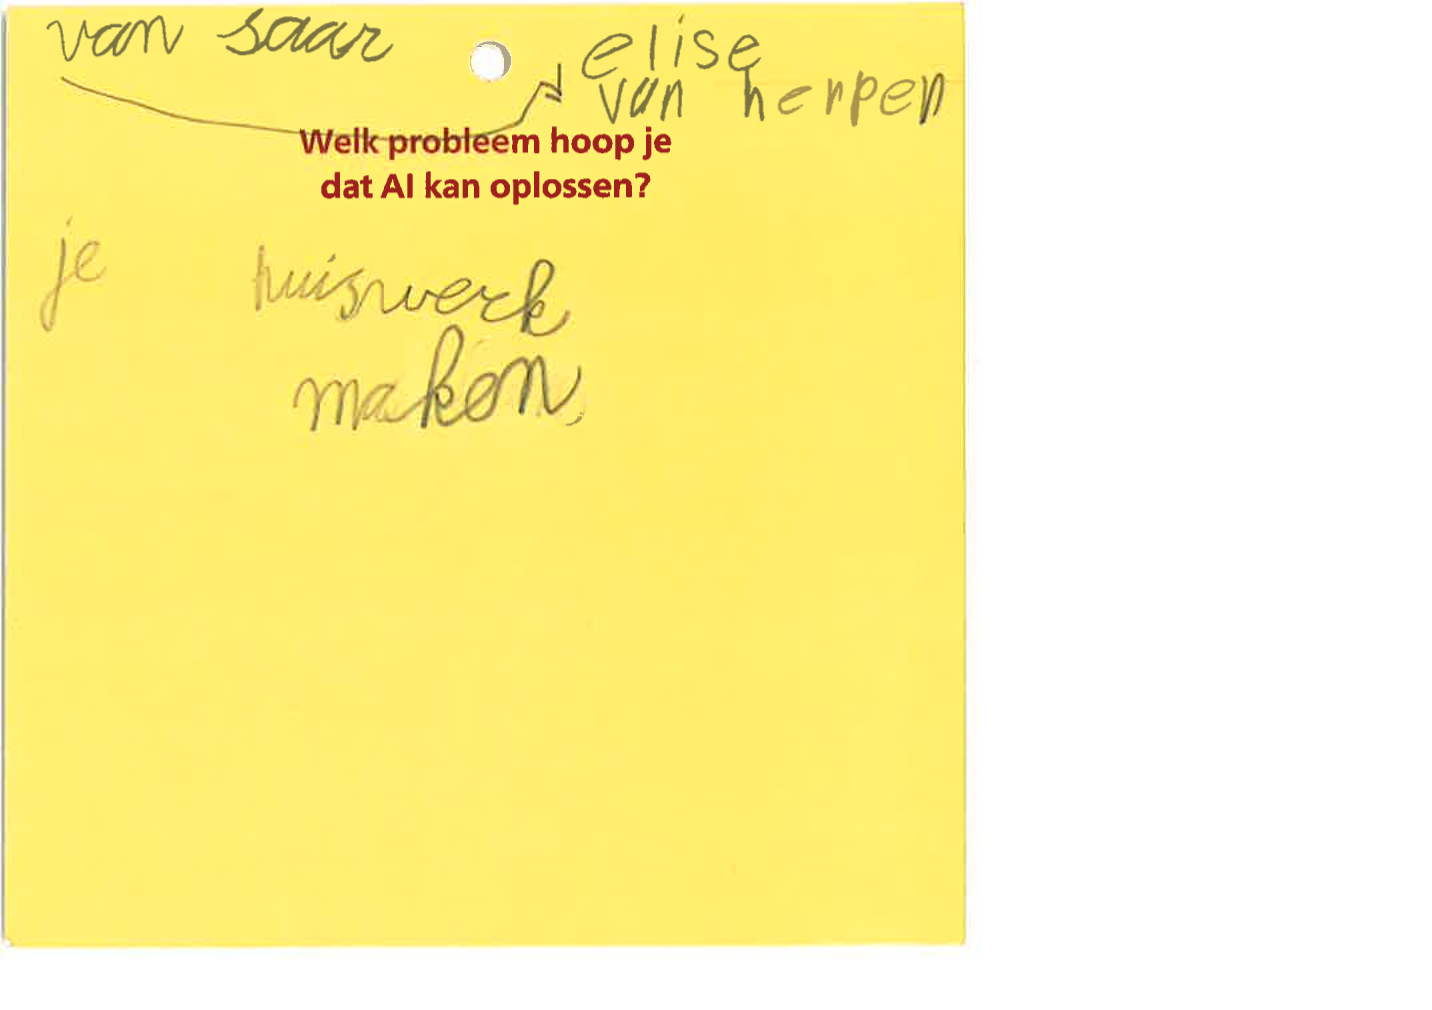 van saar
elise
van herpen
Welk probleem hoop je
dat AI kan oplossen?
je huiswerk
maken